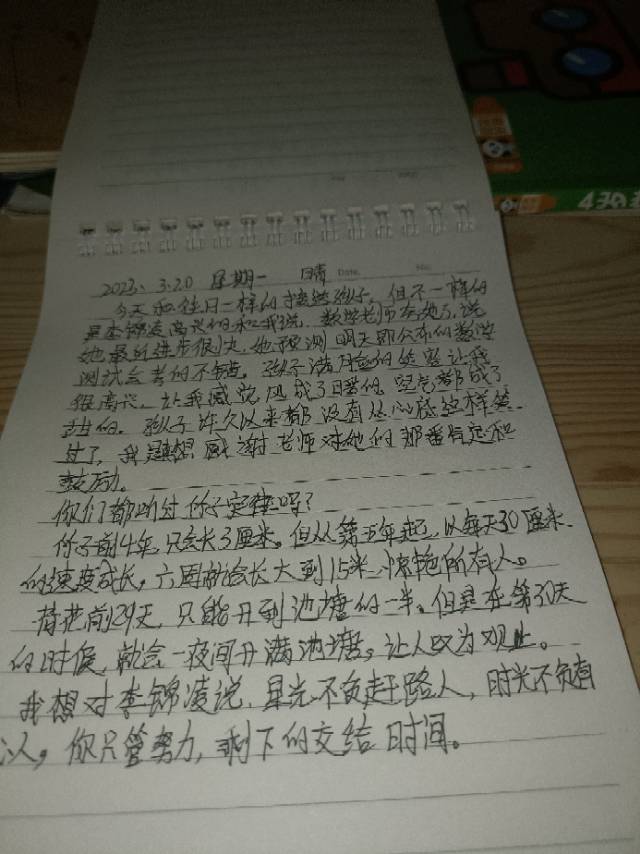 2023、3.20 星期一 晴 Date. No.
今天和往日一样的接送孩子，但不一样的
是李锦凌高兴的和我说，数学老师表扬了，说
她最近进步很大，她预测明天即公布的数学
测试会考的不错。孩子满脸的笑容让我
很高兴。让我感觉风成了甜的，空气都成了
甜的。孩子许久以来都没有从心底这样笑
过了，我是想感谢老师对她的那番肯定和
鼓励。
你们都听过竹子定律吗？
竹子前4年，只会长3厘米。但从第五年起，以每天30厘米
的速度成长，六周就会长大到15米，惊艳所有人。
荷花前29天，只能开到池塘的一半。但是在第30天
的时候，就会一夜间开满池塘，让人叹为观止。
我想对李锦凌说，星光不负赶路人，时光不负有
心人，你只管努力，剩下的交给时间。